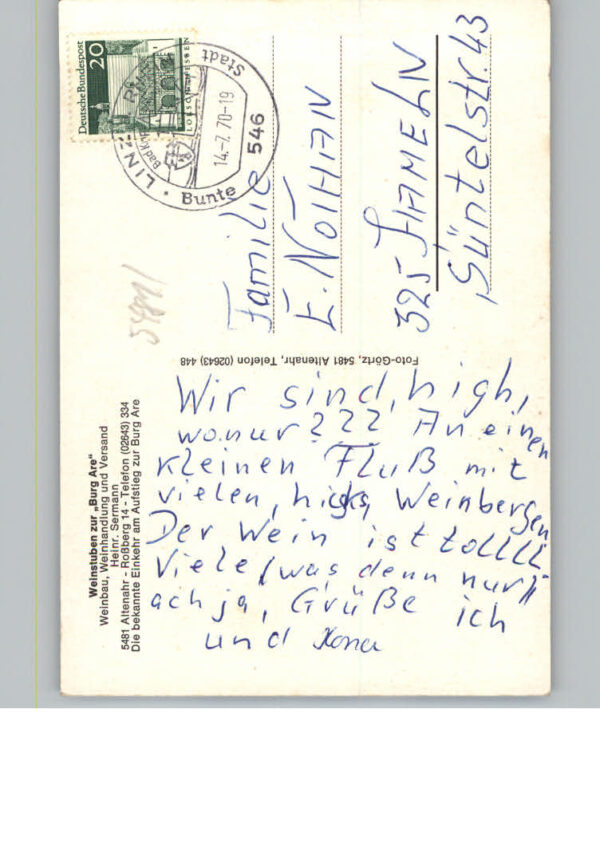 Weinstuben zur „Burg Are"
Weinbau, Weinhandlung und Versand
Heinr. Sermann
5481 Altenahr - Roßberg 14 - Telefon (02643) 334
Die bekannte Einkehr am Aufstieg zur Burg Are
Wir sind, high,
wo nur??? An einen
kleinen Fluß mit
vielen, hicks, Weinbergen
Der Wein ist tollll
Viele, (was denn nur))
ach ja, Grüße ich
und
Foto-Görtz, 5481 Altenahr, Telefon (02643) 448
Deutsche Bundespost
20
LORSCH/HESSEN
546 LINZ
14.-7.70-19
Bunte Stadt
Familie
E. NOTHAN
325 HAMELN
Süntelstr. 43